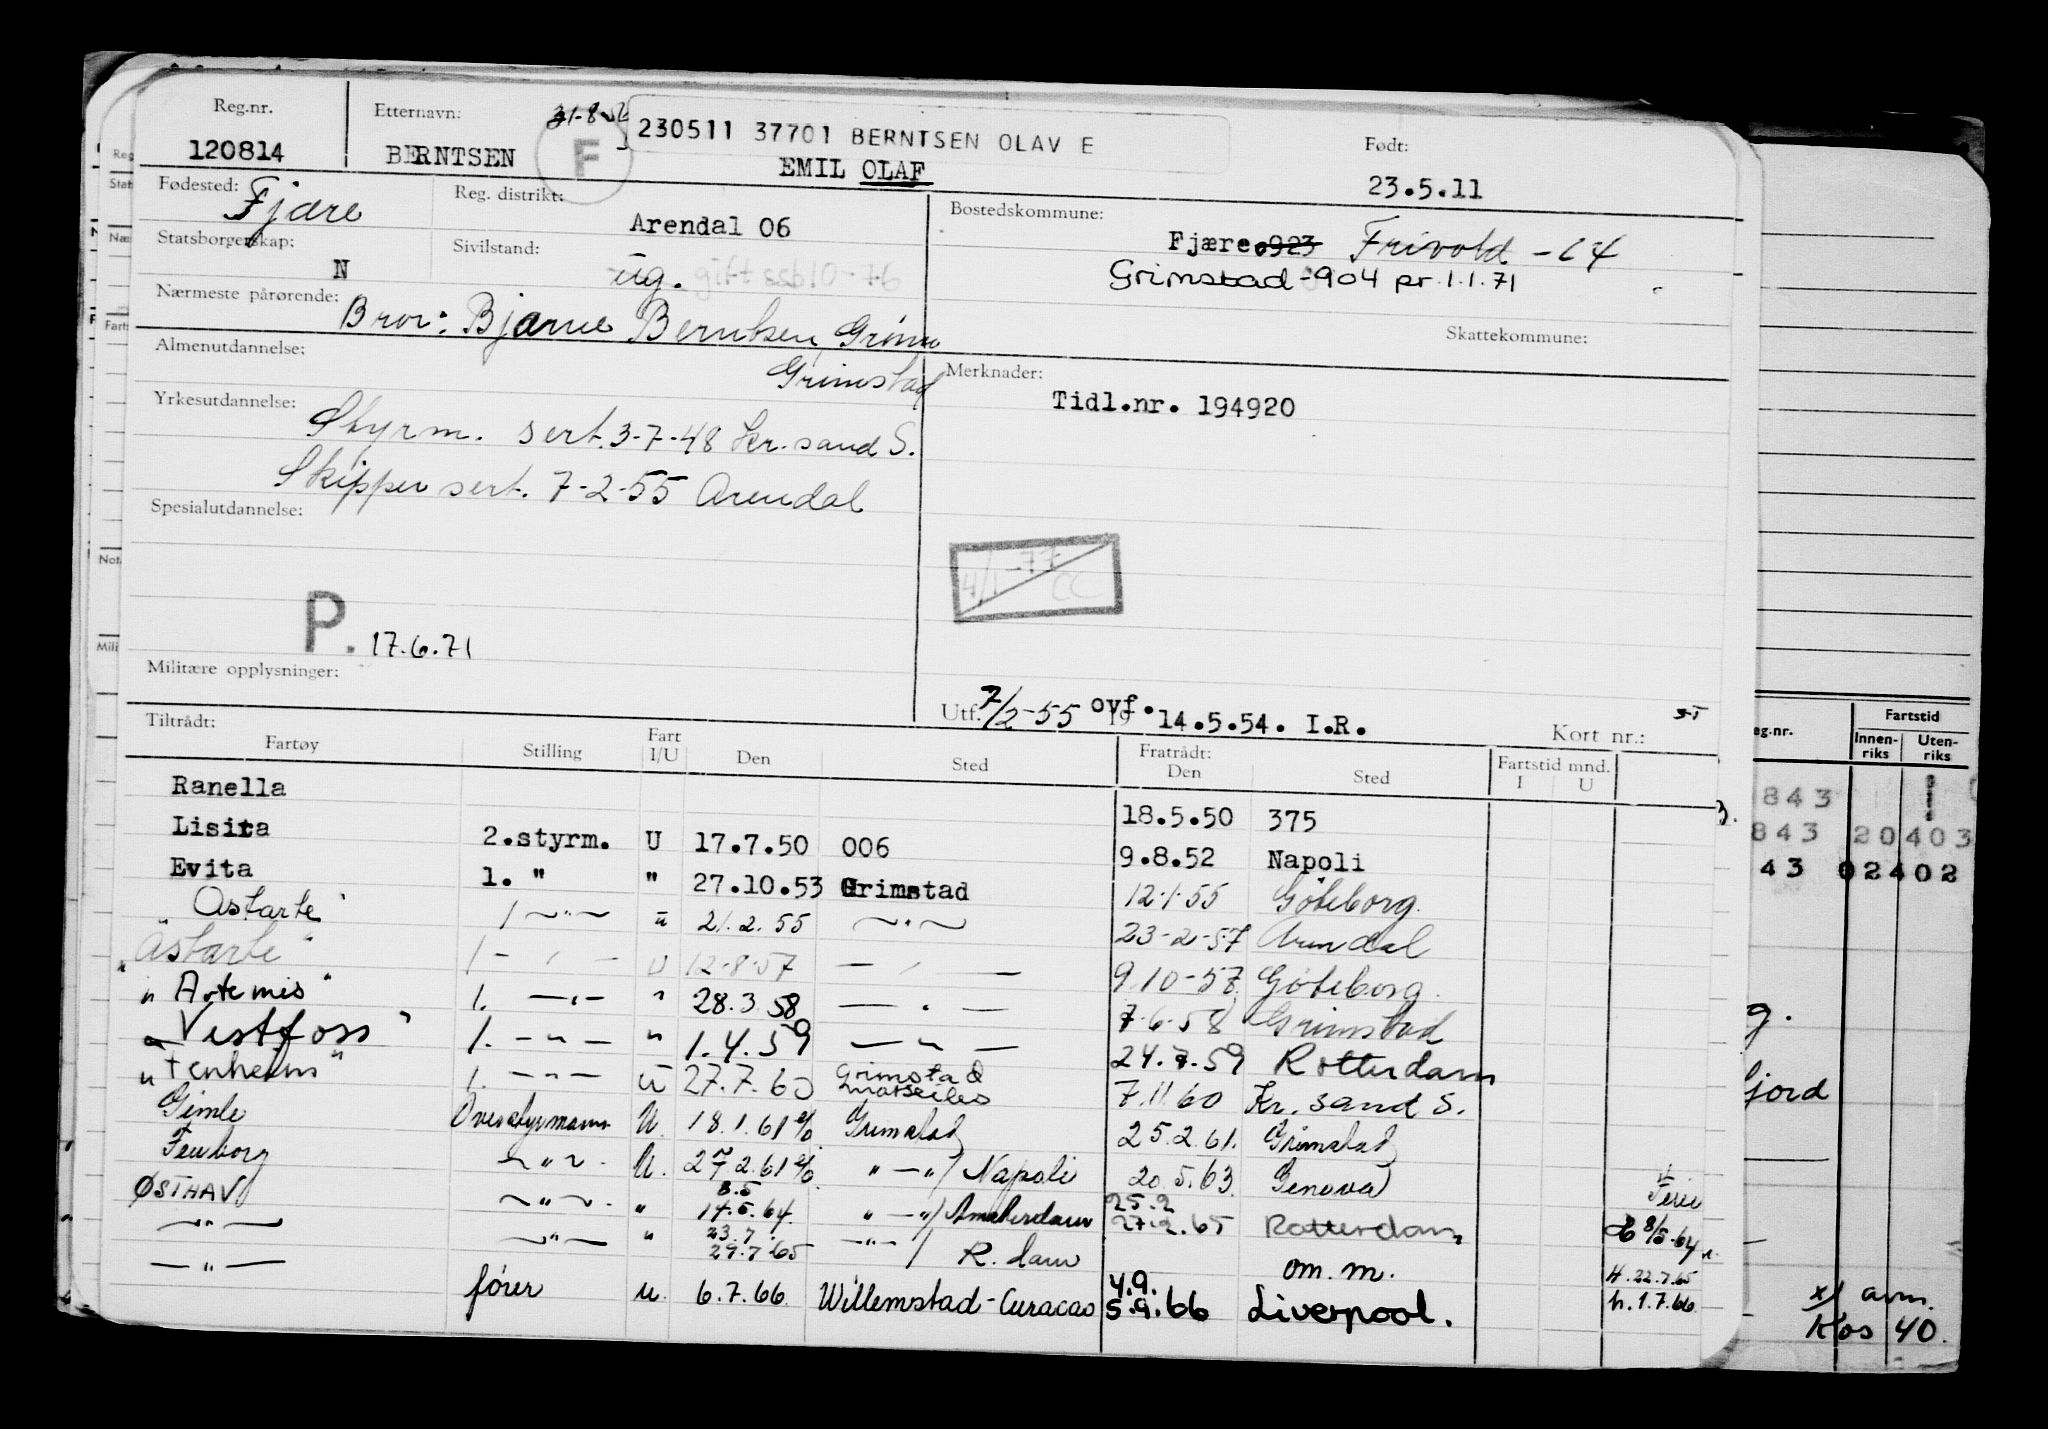 Reg.nr. Etternavn: 31-8-56 230511 37701 BERNTSEN OLAV E Født:
120814 BERNTSEN F EMIL OLAF 23.5.11
Fødested: Fjære Reg. distrikt: Arendal 06 Bostedskommune:
Fjære 0923 Frivold - 64
Statsborgerskap: N Sivilstand: ug. gift ssb 10-76 Grimstad - 904 pr. 1.1.71
Nærmeste pårørende: Bror: Bjarne Berntsen, Grimstad Skattekommune:
Almenutdannelse: Merknader:
Tidl.nr. 194920
Yrkesutdannelse: Styrm. sert. 3-7-48 Kr. sand S.
Skipper sert. 7-2-55 Arendal
Spesialutdannelse:
4/1 -77 CC
P. 17.6.71
Militære opplysninger:
Utf. 7/2-55 19 ovf. 14.5.54. I.R. Kort nr.:
Tiltrådt: Fratrådt: Fartstid mnd.
Fartøy Stilling Fart I/U Den Sted Den Sted I U
Ranella 18.5.50 375
Lisita 2.styrm. U 17.7.50 006 9.8.52 Napoli
Evita 1. " " 27.10.53 Grimstad 12-1-55 Göteborg.
" Astarte " 1 ~"~ u 21.2.55 ~"~ 23-2-57 Arendal
" Astarte " 1 - " - U 12-8-57 — " — 9.10-57 Göteborg.
" Artemis " 1. —"— " 28.3.58 — " — 7-6-58 Grimstad
" Vestfoss " 1. —"— " 1.4.59 — " — 24.7.59 Rotterdam
" Fernheim " 1. —"— u 27.7.60 Grimstad Marseilles 7.11.60 Kr. sand S.
Gimle Overstyrmann U. 18.1.61 Grimstad 25.2.61. Grimstad
Fernborg ~"~ U. 27.2.61 " — " / Napoli 20.5.63. Genova
Ferie
ØSTHAV ~"~ " 8.5 14.5.64. " — " / Amsterdam 25.2 27.2.65 Rotterdam 8/5.64
—"— ~"~ " 23.7 29.7.65 —"— / R.dam om. m. H. 22.7.65
—"— fører u. 6.7.66. Willemstad - Curacao 4.9. 5.9.66 Liverpool. h. 1.7.66
eg.nr. Fartstid
Innen-riks Uten-riks
843
843 20403
43 02402
g.
fjord
x/ avm.
Kos 40.